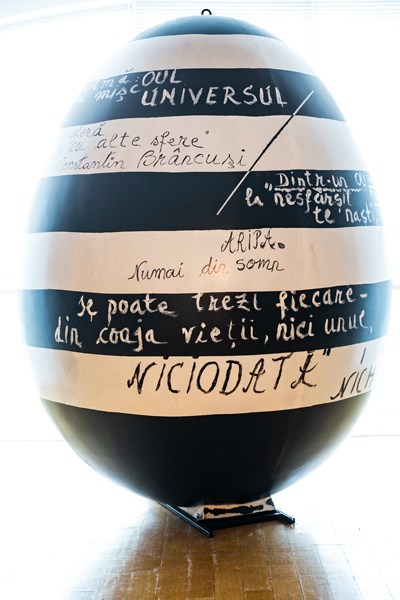 OUL
mișc UNIVERSUL
sferă
cu alte sfere"
Constantin Brâncuși
Dintr-un
la "nesfârșit
te naști
ARIPA.
Numai din somn
se poate trezi fiecare-
din coaja vieții, nici unul,
NICIODATĂ"